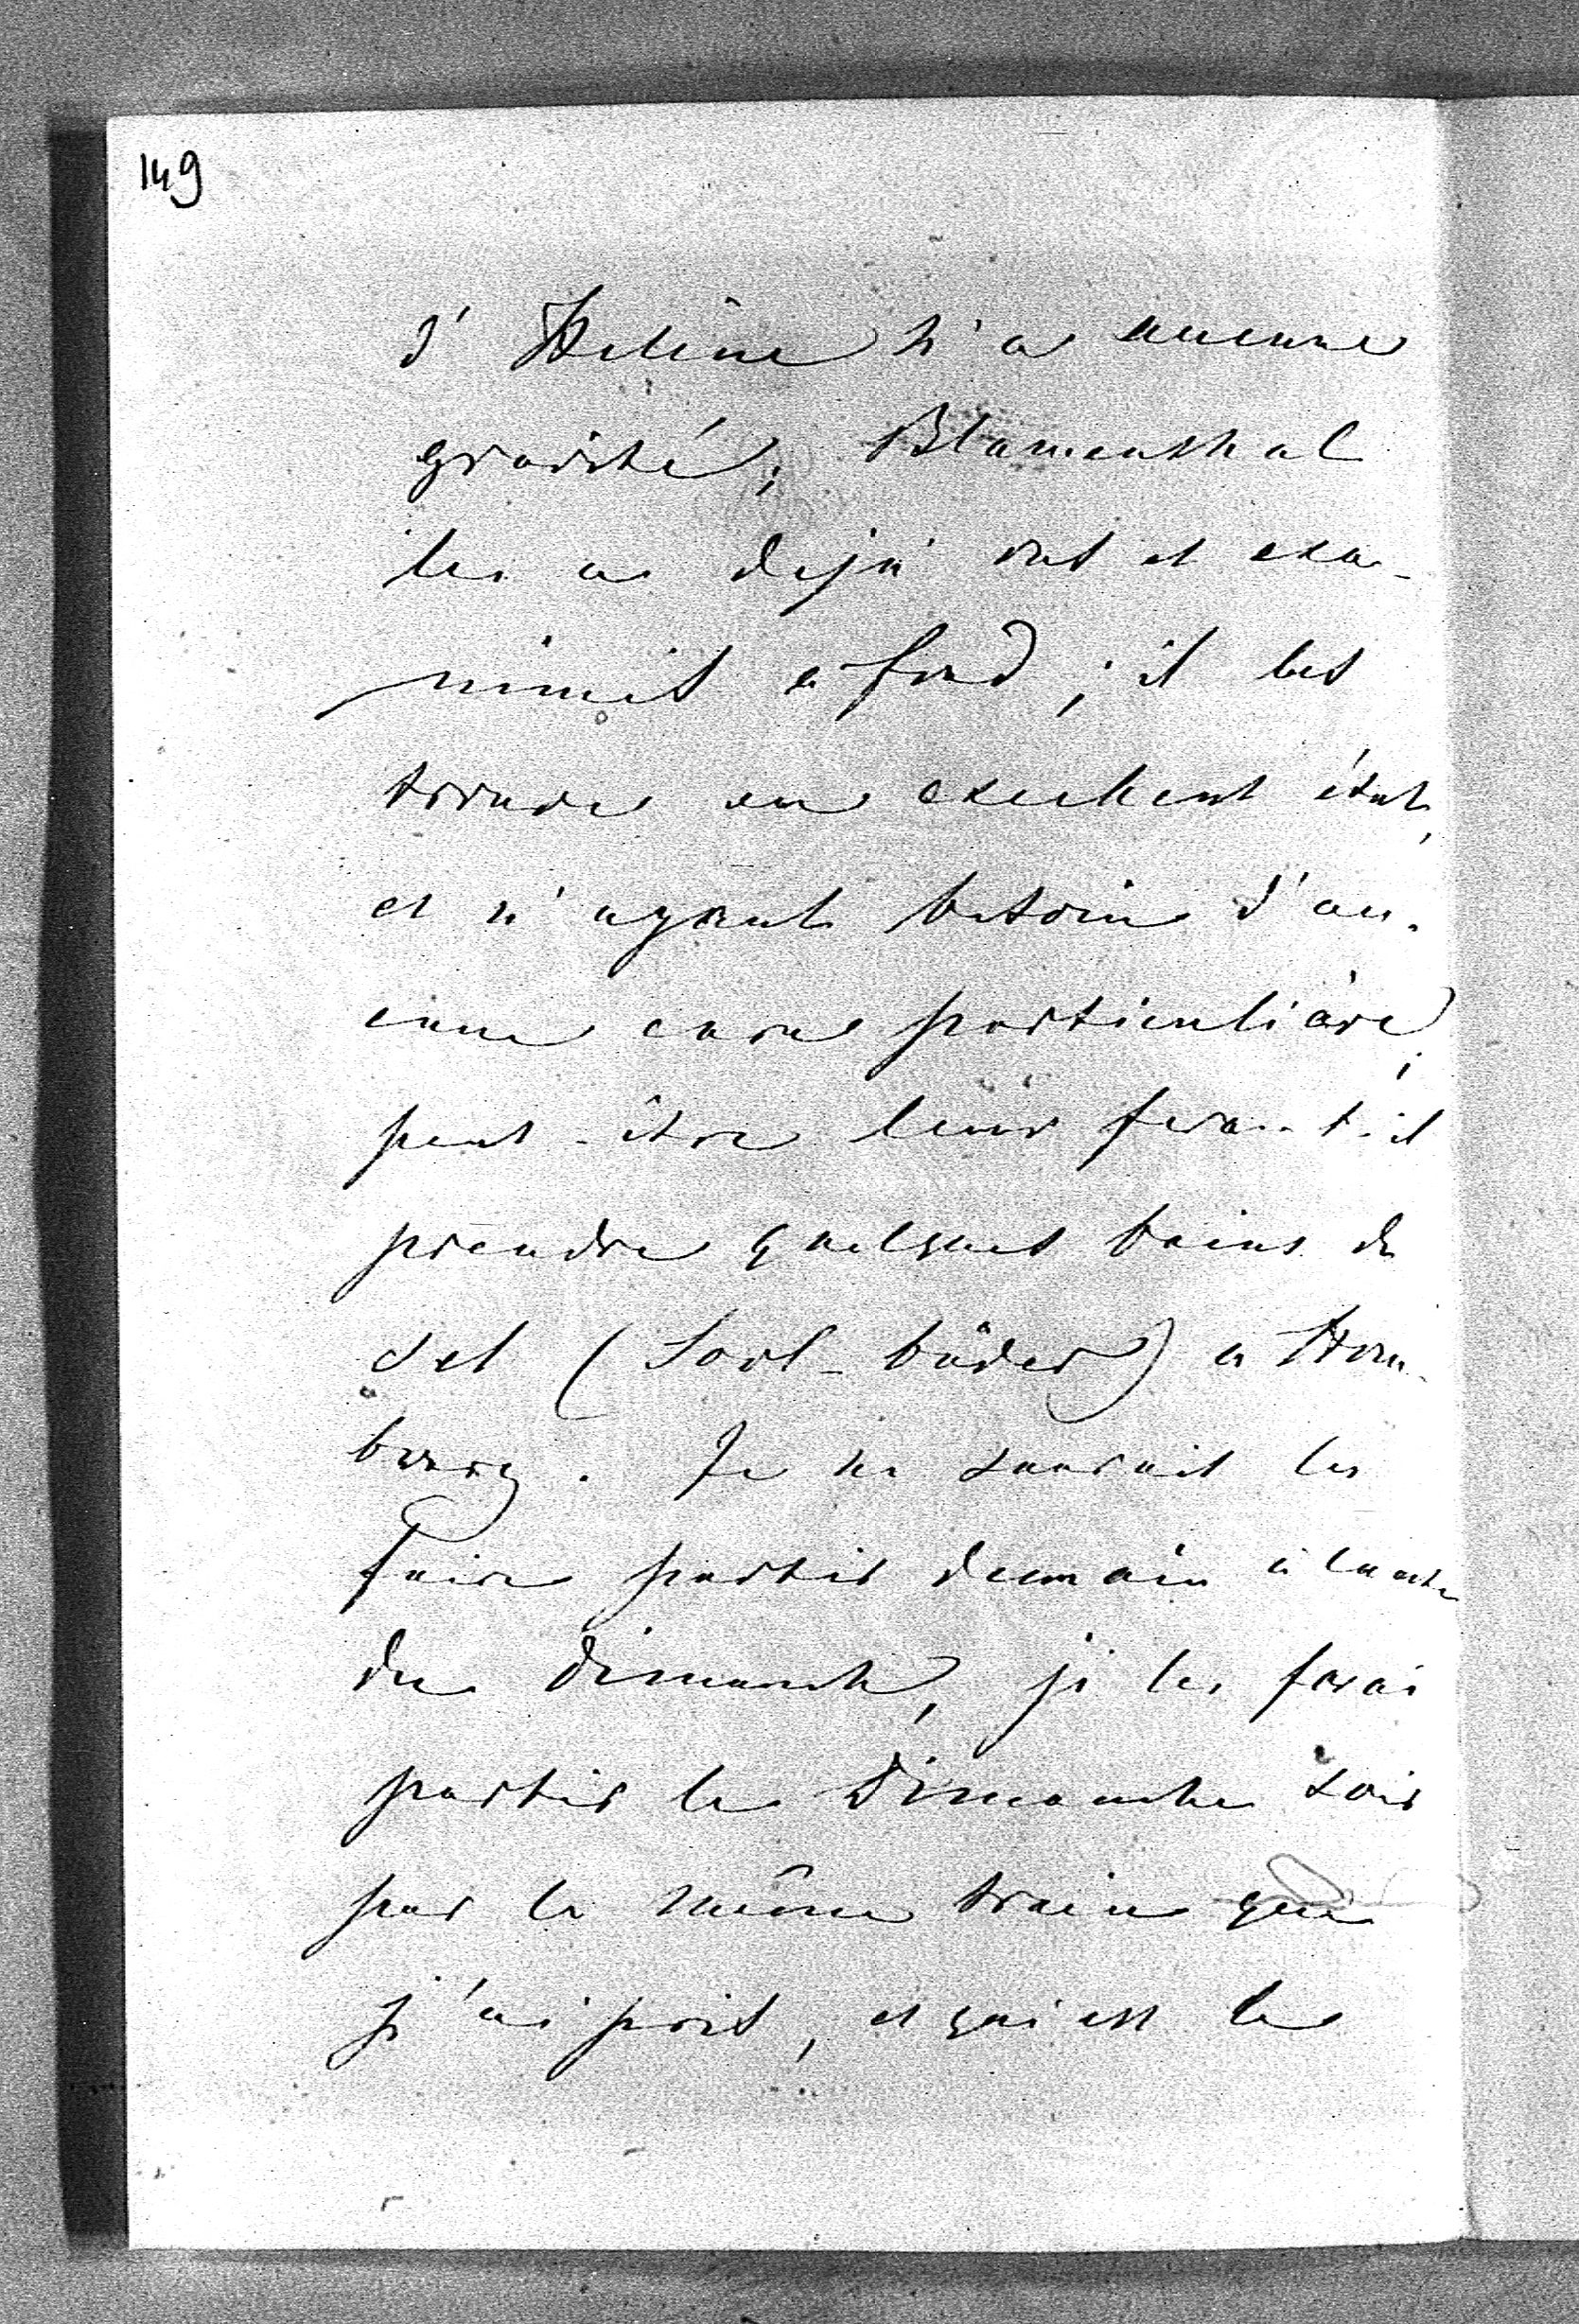 149
d'Helène n'a aucune
gravité; Blumenthal
les a dejà vus et exa-
minés à fond; il les
trouve en excellent état,
et n'ayant besoin d'au-
cune cure particulière;
peut-être leur fera-t-il
prendre quelques bains de
sel (Sool-bäder) a Hom-
bourg. Je ne saurais les
faire partir demain à cause
du dimanche, je les ferai
partir le Dimanche soir
par le même train que
j'ai pris, et qui est le